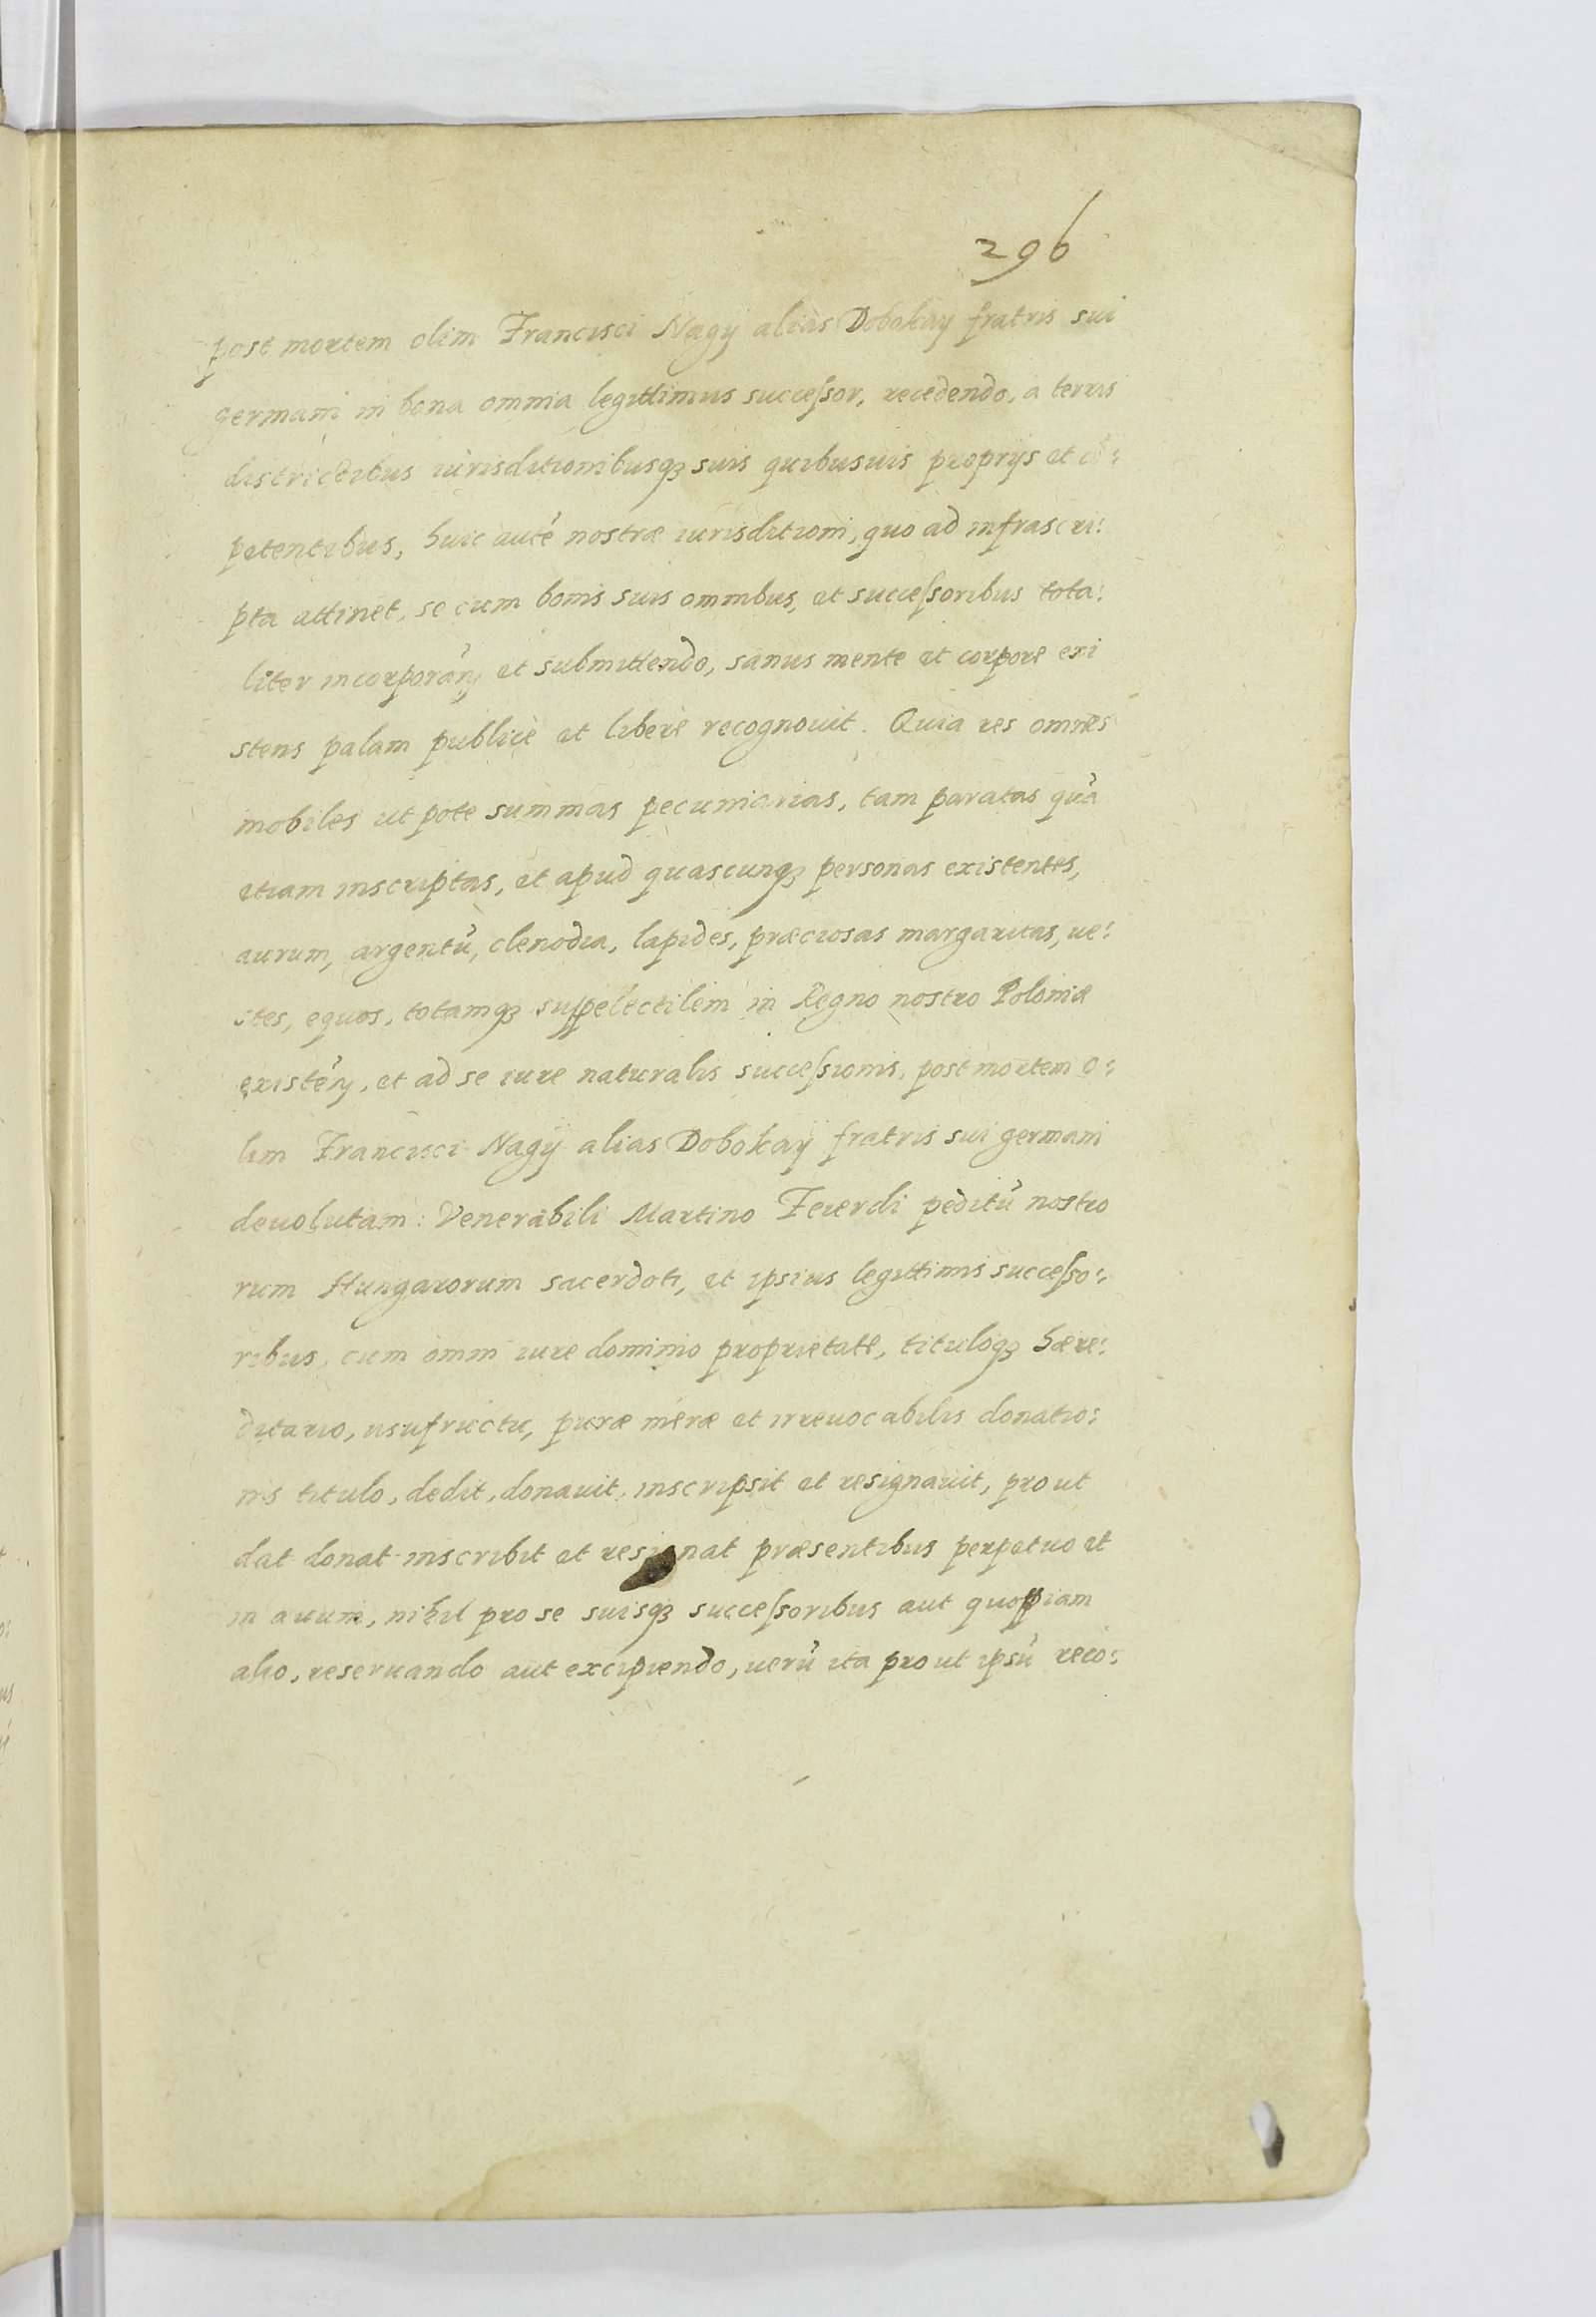 296
post mortem olim Francisci Nagÿ aliàs Dobokaÿ fratris sui
germani in bona omnia legittimus succeſsor, recedendo, a terris
districtibus iurisditionibusqꝫ suis quibusuis proprijs et cō:
petentibus, huic autē nostræ iurisditioni, quo ad infrascri:
pta attinet, se cum bonis suis omnibus, et succeſsoribus tota:
liter incorporān et submittendo, sanus mente et corpore exi
stens palam publicè et liberè recognouit. Quia res omnes
mobiles ut pote summas pecuniarias, tam paratas quā
etiam inscriptas, et apud quascunqꝫ personas existentes,
aurum, argentū, clenodia, lapides, præciosas margaritas, ue:
stes, equos, totamqꝫ suppelectilem in Regno nostro Poloniæ
existēn, et ad se iure naturalis succeſsionis, post mortem o:
lim Francisci Nagÿ alias Dobokaÿ fratris sui germani
deuolutam: Venerabili Martino Feierdi peditū nostro
rum Hungarorum sacerdoti, et ipsius legittimis succeſso:
ribus, cum omni iure dominio proprietate, tituloqꝫ hære:
ditario, usufructu, puræ meræ et irreuocabilis donatio:
nis titulo, dedit, donauit, inscripsit et resignauit, prout
dat donat inscribit et resignat præsentibus perpetuo et
in æuum, nihil pro se suisqꝫ succeſsoribus aut quopiam
alio, reseruando aut excipiendo, uerū ita prout ipsū reco: